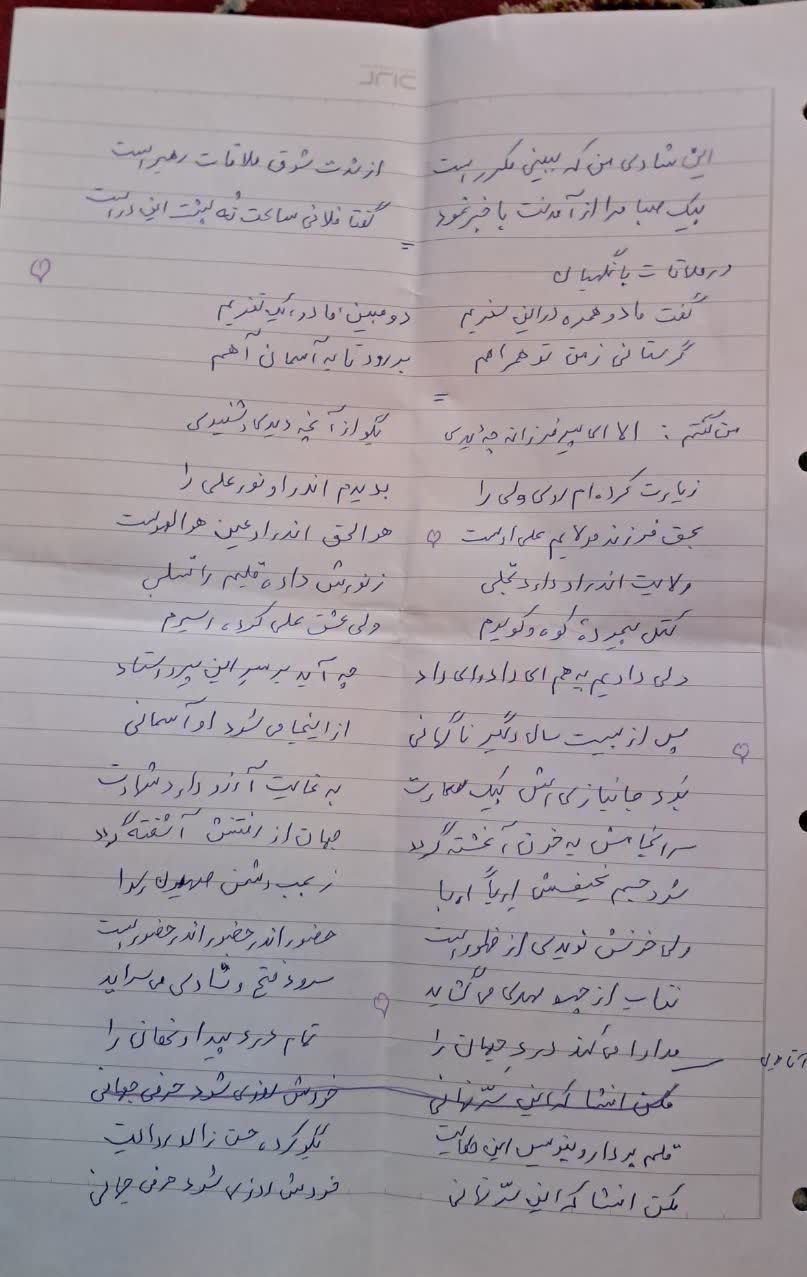 این شادی من که ببینی مکرر است از شدت شوق ملاقات رهبر است
پیک صبا مرا از آمدنت با خبر نمود گفتا فلانی ساعت نه پشت این در است
=
در ملاقات با نگهبان
گفت ما دو همره در این سفریم دو مبین ما در یک نفریم
گر ستانی ز من تو همراهم برود تا به آسمان آهم
=
من گفتم: الا ای پیر فرزانه چه دیدی بگو از آنچه دیدی و شنیدی
زیارت کرده ام روی ولی را بدیدم اندر او نور علی را
بحق فرزند مولایم علی اوست هو الحق اندر او عین هو الهوست
ولایت اندر او دارد تجلی ز نورش داده قلبم را تسلی
کتل پیموده کوه و کویرم ولی عشق علی کرده اسیرم
دلی دادیم به هم ای داد و ای داد چه آید بر سر این پیر و استاد
پس از بیست سال دگر ناگهانی از اینجا می شود او آسمانی
بود جانبازی اش یک به غایت آرزو دارد شهادت
سرانجامش به خون آغشته گردد جهان از رفتنش آشفته گردد
شود جسم نحیفش اربا اربا ز بمب دشمن صهیون
ولی خونش نویدی از ظهور است حضور اندر حضور اندر حضور است
نقاب از چهره مهدی می گشاید سرود فتح و شادی می سراید
مداوا می کند درد جهان را تمام درد پیدا و نهان را
مکن افشا که این سرّ نهانی خودش روزی شود حرفی جهانی
قلم بردار و بنویس این حکایت نگو کرده حسن زا روایت
مکن افشا که این سرّ نهانی خودش روزی شود حرفی جهانی